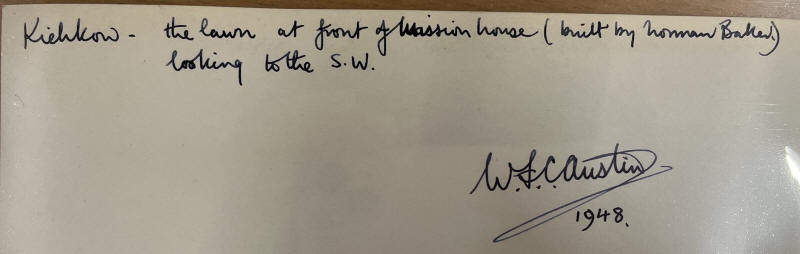 Kiehkow - the lawn at front of Mission house (built by Norman Baker.)
looking to the S.W.
W.S.C. Austin
1948.